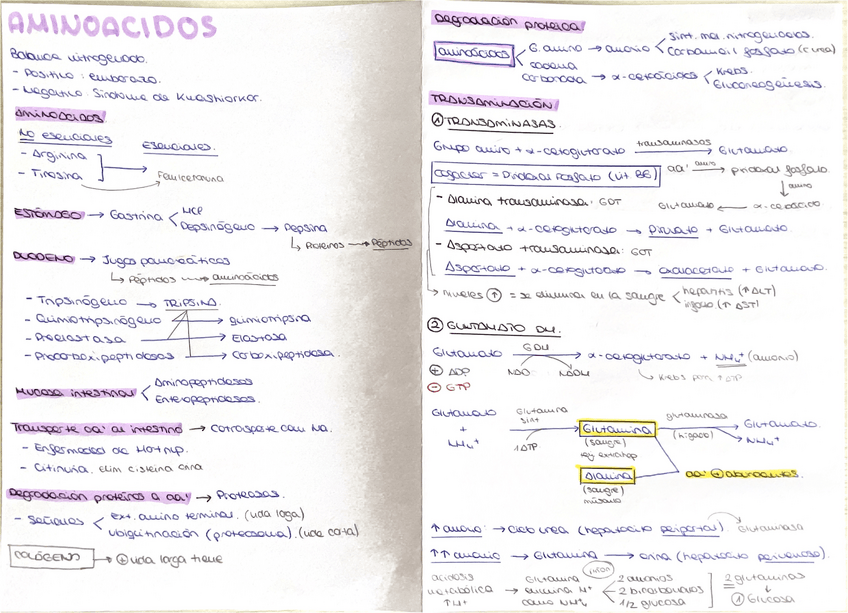 AMINOACIDOS
Balance nitrogenado.
- Positivo : embarazo.
- Negativo : Síndrome de Kwashiorkor.
Aminoácidos
No esenciales
Esenciales.
- Arginina
- Tirosina
Fenilcetonuria
ESTÓMAGO → Gastrina
HCl
Pepsinógeno → Pepsina
↳ Proteínas → Péptidos
DUODENO → Jugos pancreáticos
↳ Péptidos → aminoácidos
- Tripsinógeno → TRIPSINA.
- Quimiotripsinógeno → quimiotripsina
- Proelastasa → Elastasa
- Procarboxipeptidasas → Carboxipeptidasa.
Mucosa intestinal
Aminopeptidasas
Enteropeptidasas.
Transporte aa' al intestino → Cotransporte con Na.
- Enfermedad de Hartnup.
- Citinuria. elim cisteina orina
Degradación proteínas a aa' → Proteasas.
- Señales
ext. amino terminal. (vida larga)
ubiquitinación (proteosoma). (vida corta)
COLÁGENO → ⊕ vida larga tiene
Degradación proteica
aminoácidos
G. amino → amonio
Sínt. mol. nitrogenadas.
Carbamoil fosfato (c. urea)
cadena carbonada → α-cetoácidos
Krebs.
Gluconeogénesis.
TRANSAMINACIÓN
① TRANSAMINASAS.
Grupo amino + α-cetoglutarato transaminasas → Glutamato.
cofactor = Piridoxal fosfato (Vit B6)
aa' amino → piridoxal fosfato.
↓ amino
Glutamato ← α-cetoácido.
- Alanina transaminasa: GOT
Alanina + α-cetoglutarato → Piruvato + Glutamato
- Aspartato transaminasa: GOT
Aspartato + α-cetoglutarato → oxalacetato + Glutamato.
niveles ↑ = se eliminan en la sangre
hepatitis (↑ALT)
hígado (↑AST)
② GLUTAMATO DH.
Glutamato GDH → α-cetoglutarato + NH₄⁺ (amonio)
⊕ ADP
NAD
NADH
↳ Krebs para ↑ATP
⊖ GTP
Glutamato
+
NH₄⁺
Glutamina
sint
1 ATP
Glutamina
(sangre)
tej extrahep
glutaminasa
(hígado)
Glutamato.
NH₄⁺
Alanina
(sangre)
músculo
aa' ⊕ abundantes.
↑ amonio : → Ciclo urea (hepatocito periportal).
Glutaminasa
↑↑ amonio → Glutamina → orina (hepatocito perivenoso).
acidosis
metabólica
↑H⁺
→
Glutamina
elimina H⁺
como NH₄
riñón
2 amonios
2 bicarbonatos
1/2 glucosa
2 glutaminas
↓
1 Glucosa